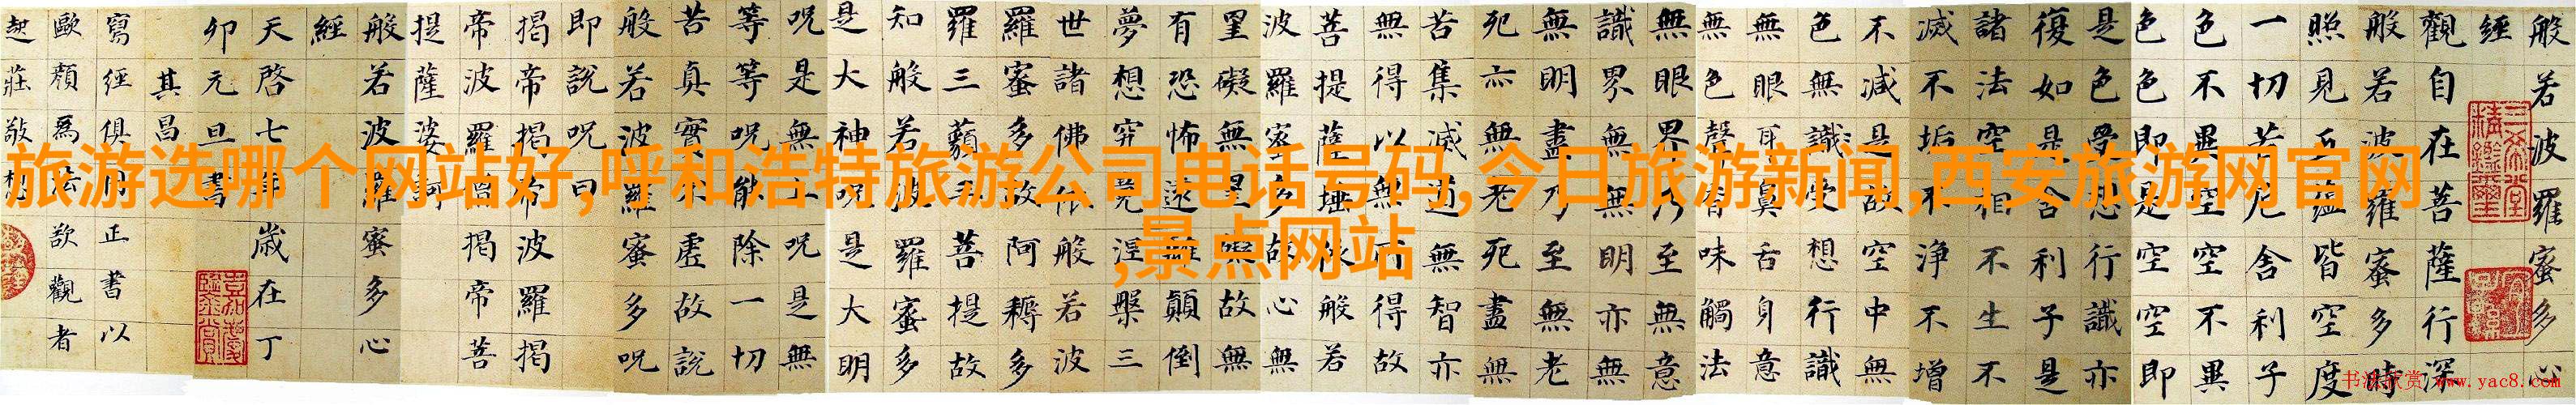 旅游选哪个网站好,呼和浩特旅游公司电话号码,今日旅游新闻,西安旅游网官网
,景点网站
般若波羅蜜多心
經
觀自在菩薩行深
般若波羅蜜多時
照見五蘊皆空度
一切苦厄舍利子
色不異空空不異
色色即是空空即
是色受想行識亦
復如是舍利子是
諸法空相不生不
滅不垢不淨不增
不減是故空中無
色無識受想行識
無眼耳鼻舌身意
無色聲香味觸法
無眼界乃至無意
識界無無明亦無
無明盡乃至無老
死亦無老死盡無
苦集滅道無智亦
無得以無所得故
菩提薩埵依般若
波羅蜜多故心無
罣礙無罣礙故無
有恐怖遠離顛倒
夢想究竟涅槃三
世諸佛依般若波
羅蜜多故阿耨多
羅三藐三菩提故
知般若波羅蜜多
是大神呪是大明
呪是無上呪是無
等等呪能除一切
苦真實不虛故說
般若波羅蜜多呪
即說呪曰
揭帝揭帝波羅揭
帝波羅僧揭帝菩
提薩婆訶
般若波羅蜜多心
經
天啓七年歲在丁
卯元旦書
其昌
寫經俱用正書以
歐顏爲法欲觀者
起莊敬想
书法欣赏 www.yac8.com